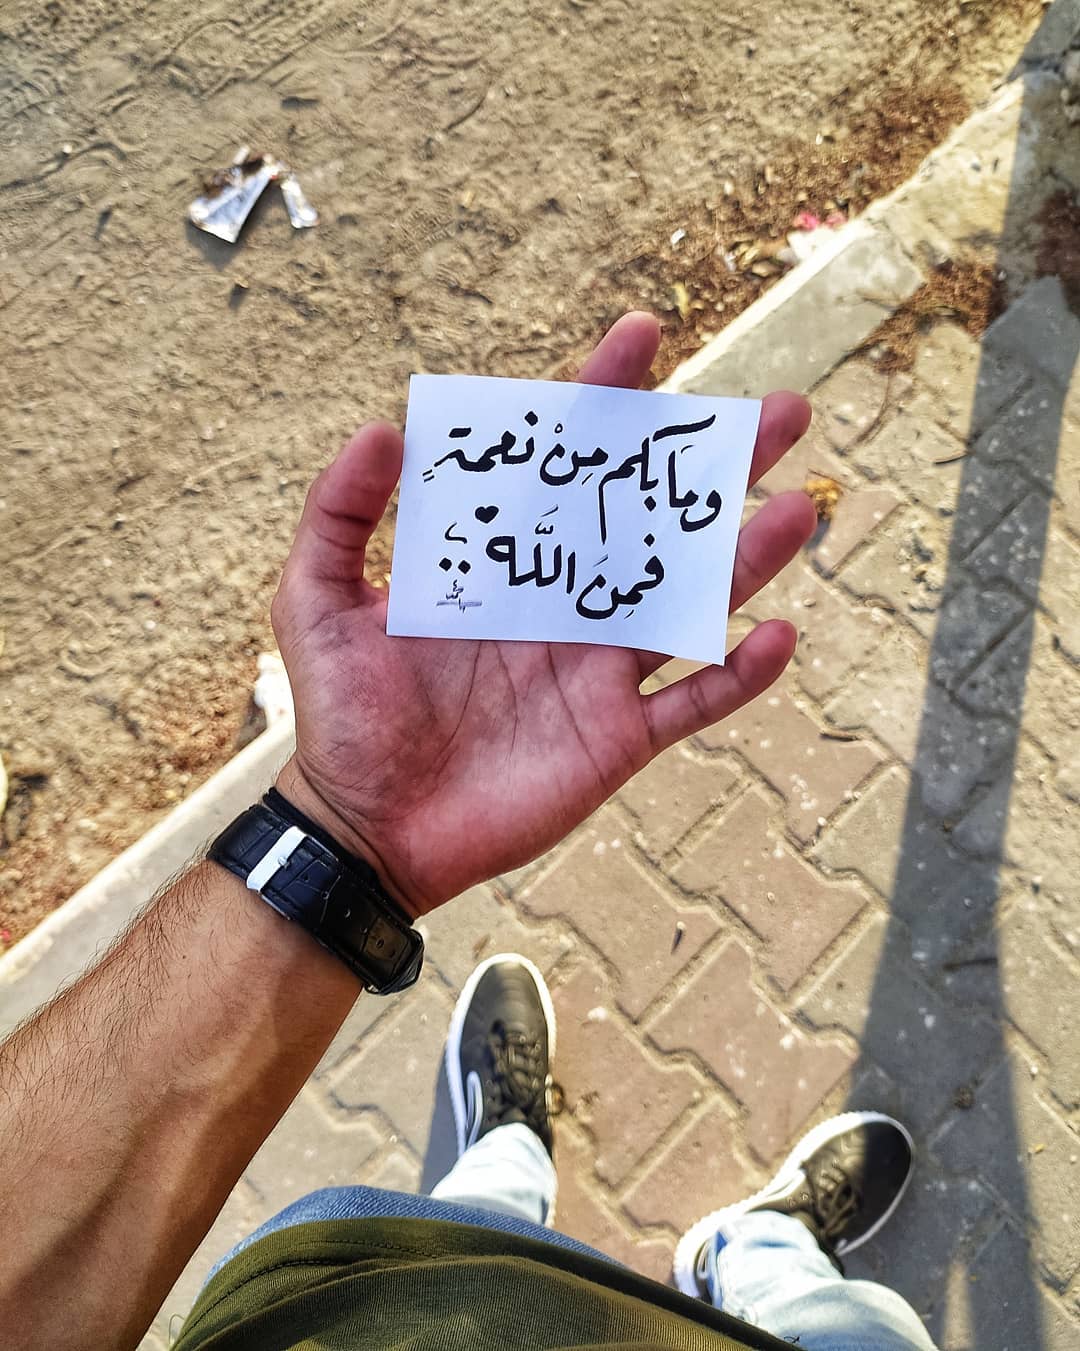 ومَا بكم مِنْ نعمةٍ
فمِنَ اللَّه